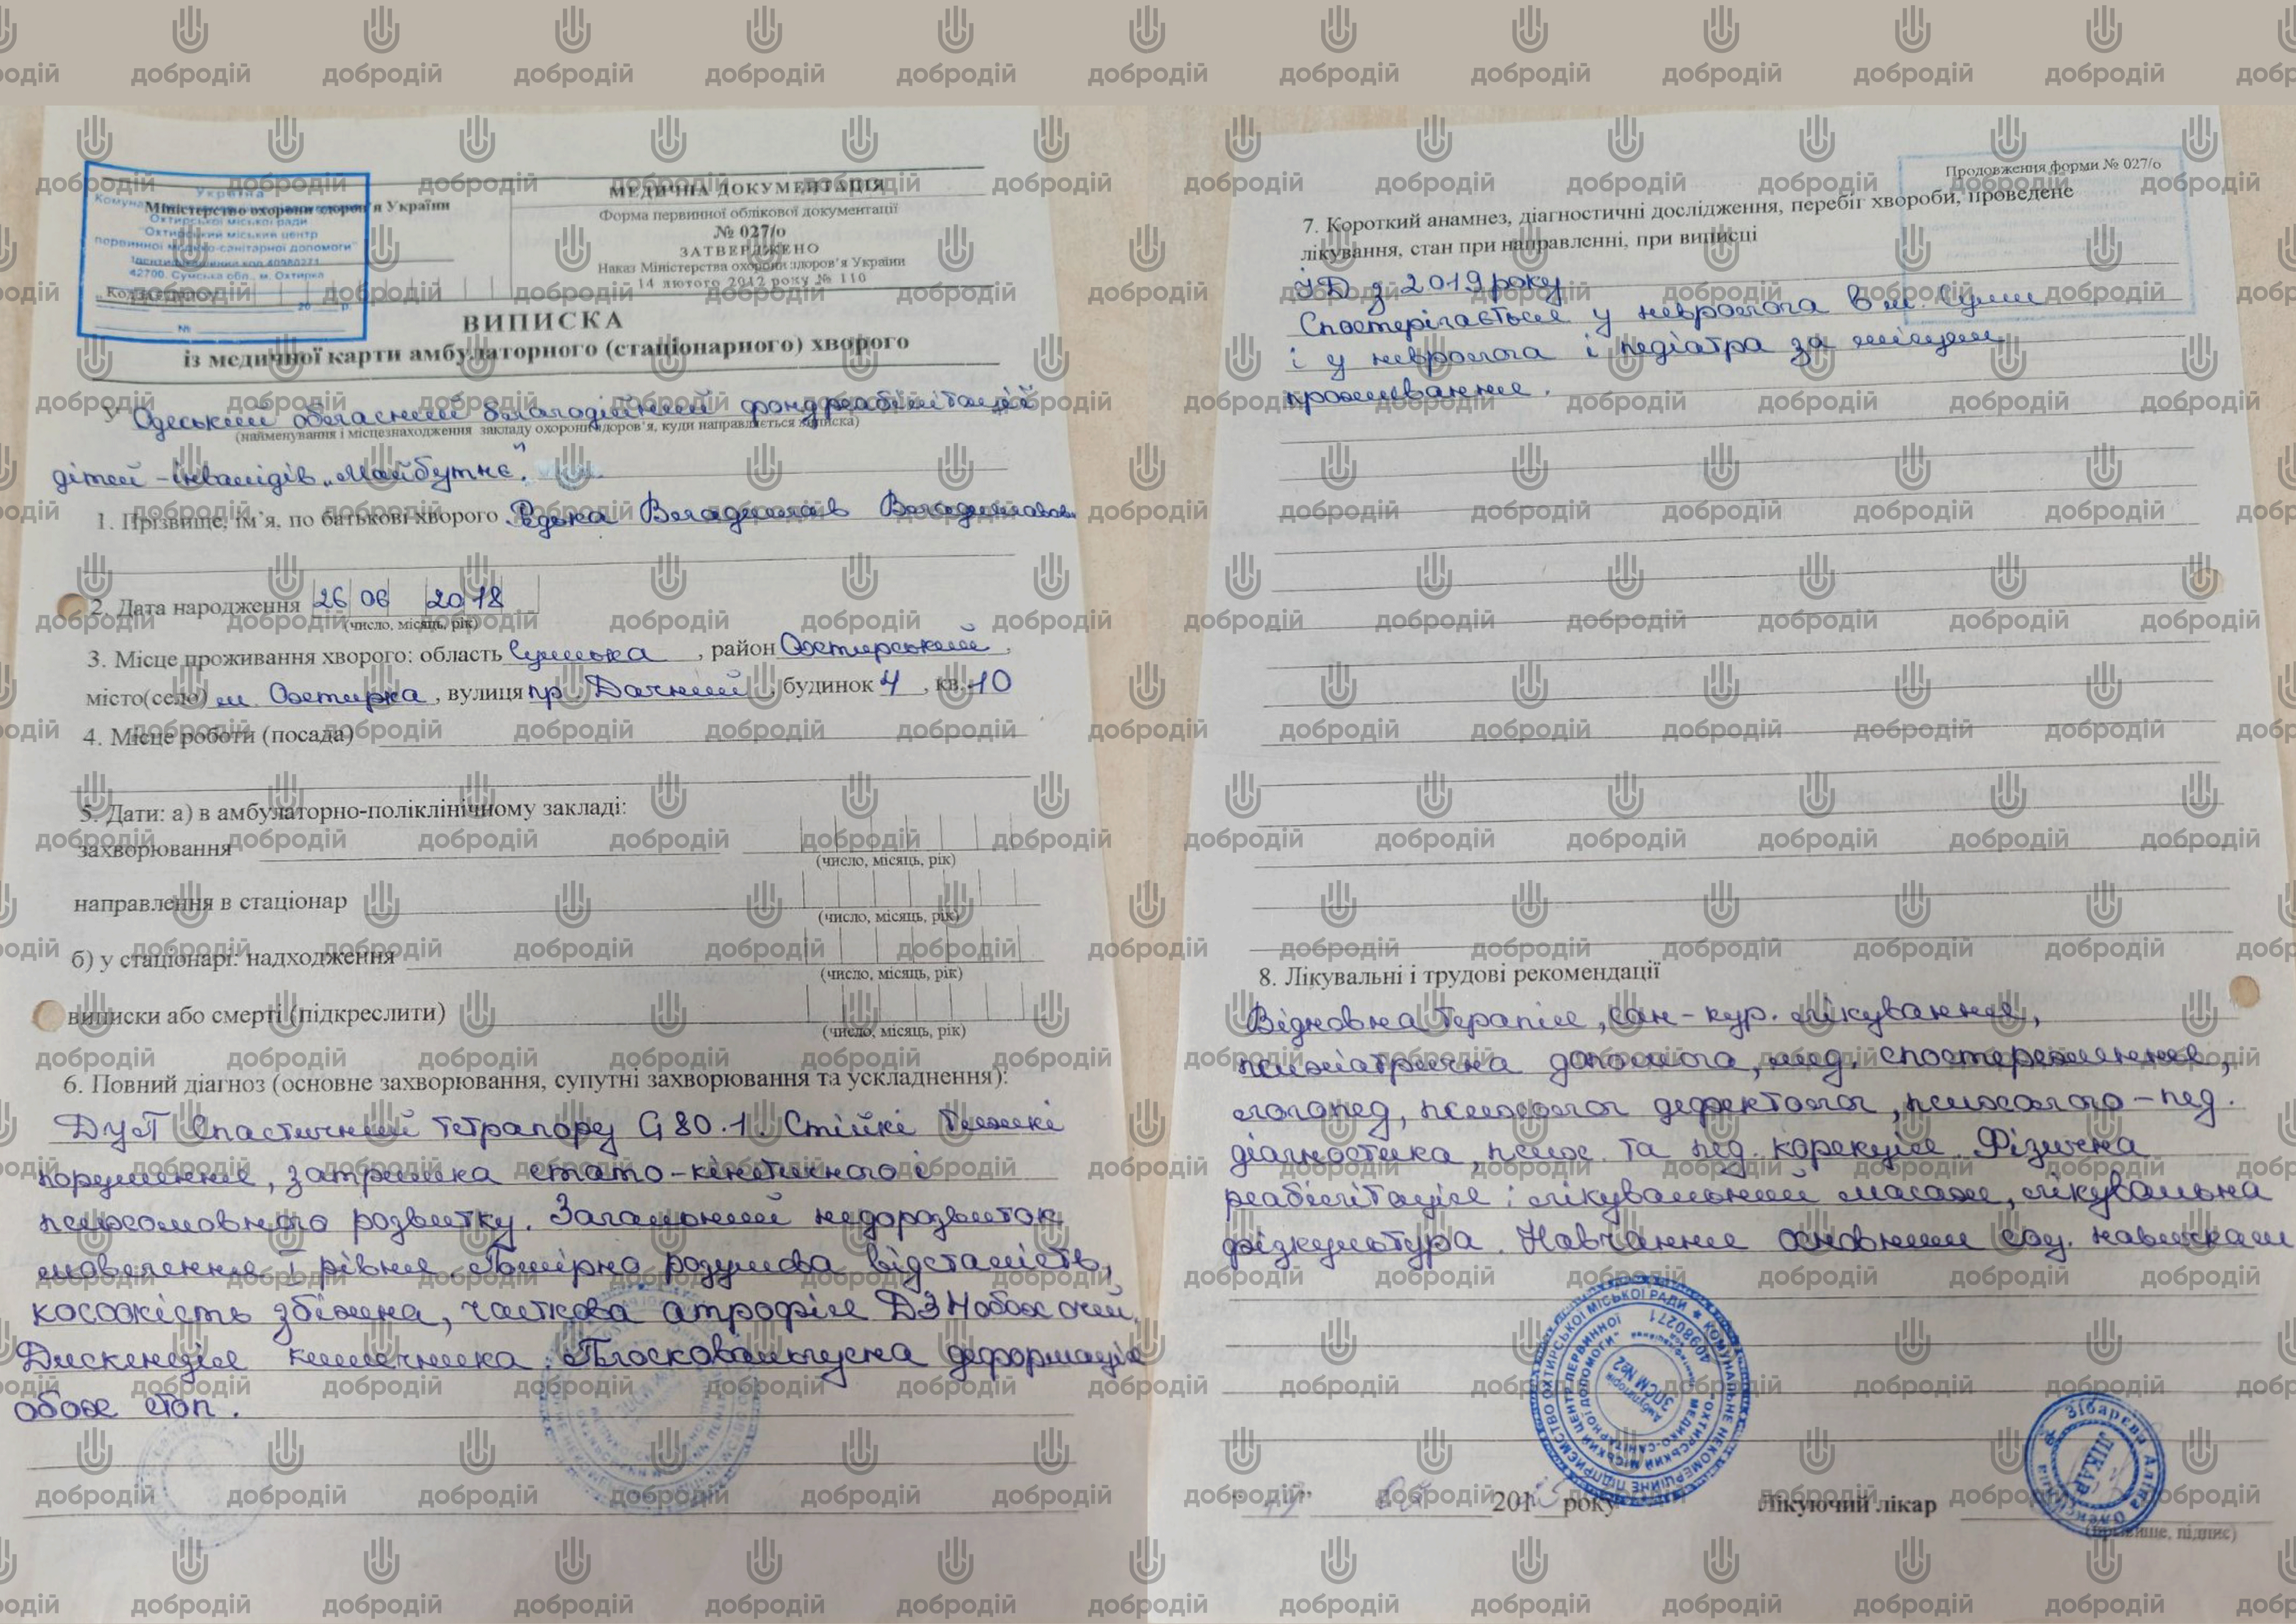 добродій
Україна
Охтирської міської ради
"Охтирський міський центр
первинної медико-санітарної допомоги"
Ідентифікаційний код 40980271
42700, Сумська обл., м. Охтирка
№
Міністерство охорони здоров'я України
МЕДИЧНА ДОКУМЕНТАЦІЯ
Форма первинної облікової документації
№ 027/о
ЗАТВЕРДЖЕНО
Наказ Міністерства охорони здоров'я України
14 лютого 2012 року № 110
ВИПИСКА
із медичної карти амбулаторного (стаціонарного) хворого
У Одеський обласний благодійний фонд реабілітації
(найменування і місцезнаходження закладу охорони здоров'я, куди направляється виписка)
дітей-інвалідів „Майбутнє"
1. Прізвище, ім'я, по батькові хворого Редька Владислав
2. Дата народження 26 06 2018
(число, місяць, рік)
3. Місце проживання хворого: область Сумська, район Охтирський,
місто(село) м. Охтирка, вулиця пр. Дачний, будинок 4, кв. 10
4. Місце роботи (посада)
5. Дати: а) в амбулаторно-поліклінічному закладі:
захворювання
(число, місяць, рік)
направлення в стаціонар
(число, місяць, рік)
б) у стаціонарі: надходження
(число, місяць, рік)
виписки або смерті (підкреслити)
(число, місяць, рік)
6. Повний діагноз (основне захворювання, супутні захворювання та ускладнення):
ДЦП Спастичний тетрапарез G 80.1. Стійкі тяжкі
порушення, затримка стато-кінетичного і
психомовного розвитку. Загальний недорозвиток
мовлення I рівня. Помірна розумова відсталість,
косоокість збіжна, часткова атрофія ДЗН обох очей.
Дискенізія кишечника. Плосковальгусна деформація
обох стоп.
Продовження форми № 027/о
7. Короткий анамнез, діагностичні дослідження, перебіг хвороби, проведене
лікування, стан при направленні, при виписці
ІД з 2019 року
Спостерігається у невролога в м. Суми
і у невролога і педіатра за місцем
проживання.
8. Лікувальні і трудові рекомендації
Відновна терапія, сан-кур. лікування,
психіатрична допомога, мед. спостереження,
логопед, психолог дефектолог, психолого-пед.
діагностика, псих. та пед. корекція. Фізична
реабілітація: лікувальний масаж, лікувальна
фізкультура. Навчання основним соц. навичкам
КОМУНАЛЬНЕ НЕКОМЕРЦІЙНЕ ПІДПРИЄМСТВО ОХТИРСЬКОЇ МІСЬКОЇ РАДИ
"ОХТИРСЬКИЙ МІСЬКИЙ ЦЕНТР ПЕРВИННОЇ МЕДИКО-САНІТАРНОЇ ДОПОМОГИ"
40980271
Амбулаторія
ЗПСМ №2
201 року
Лікуючий лікар
(прізвище, підпис)
Зібарєва Аліна Олексіївна
ЛІКАР